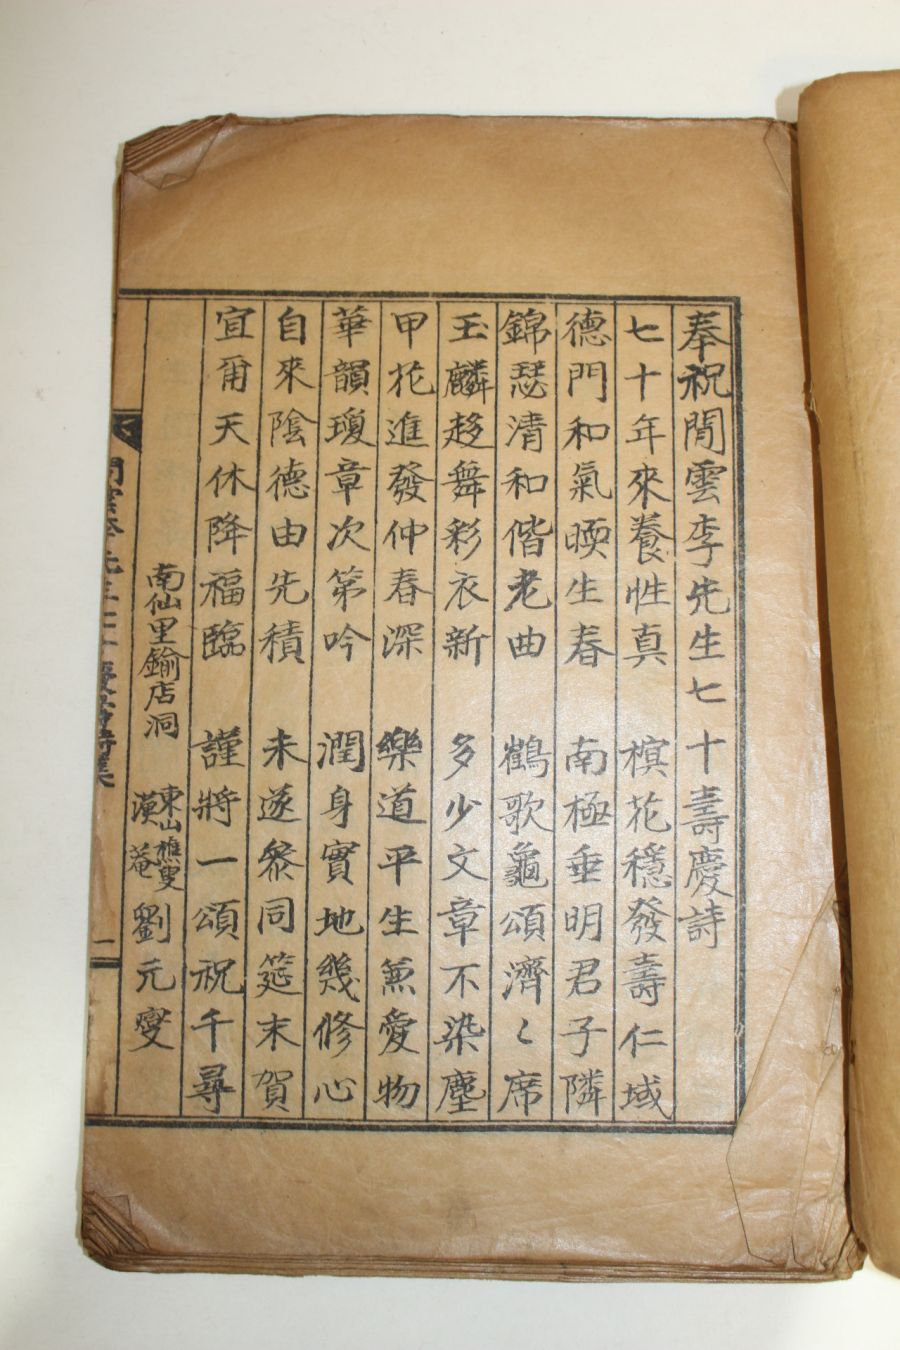 奉祝閒雲李先生七十壽慶詩
七十年來養性真 樻花穩發壽仁域
德門和氣暎生春 南極垂明君子隣
錦瑟清和偕老曲 鶴歌龜頌濟〻席
玉麟趍舞彩衣新 多少文章不染塵
甲花進發仲春深 樂道平生兼愛物
華韻瓊章次第吟 潤身實地幾修心
自來陰德由先積 未遂參同筵末賀
宜爾天休降福臨 謹將一頌祝千尋
南仙里鍮店洞 東山樵叟 漢菴 劉元燮
一